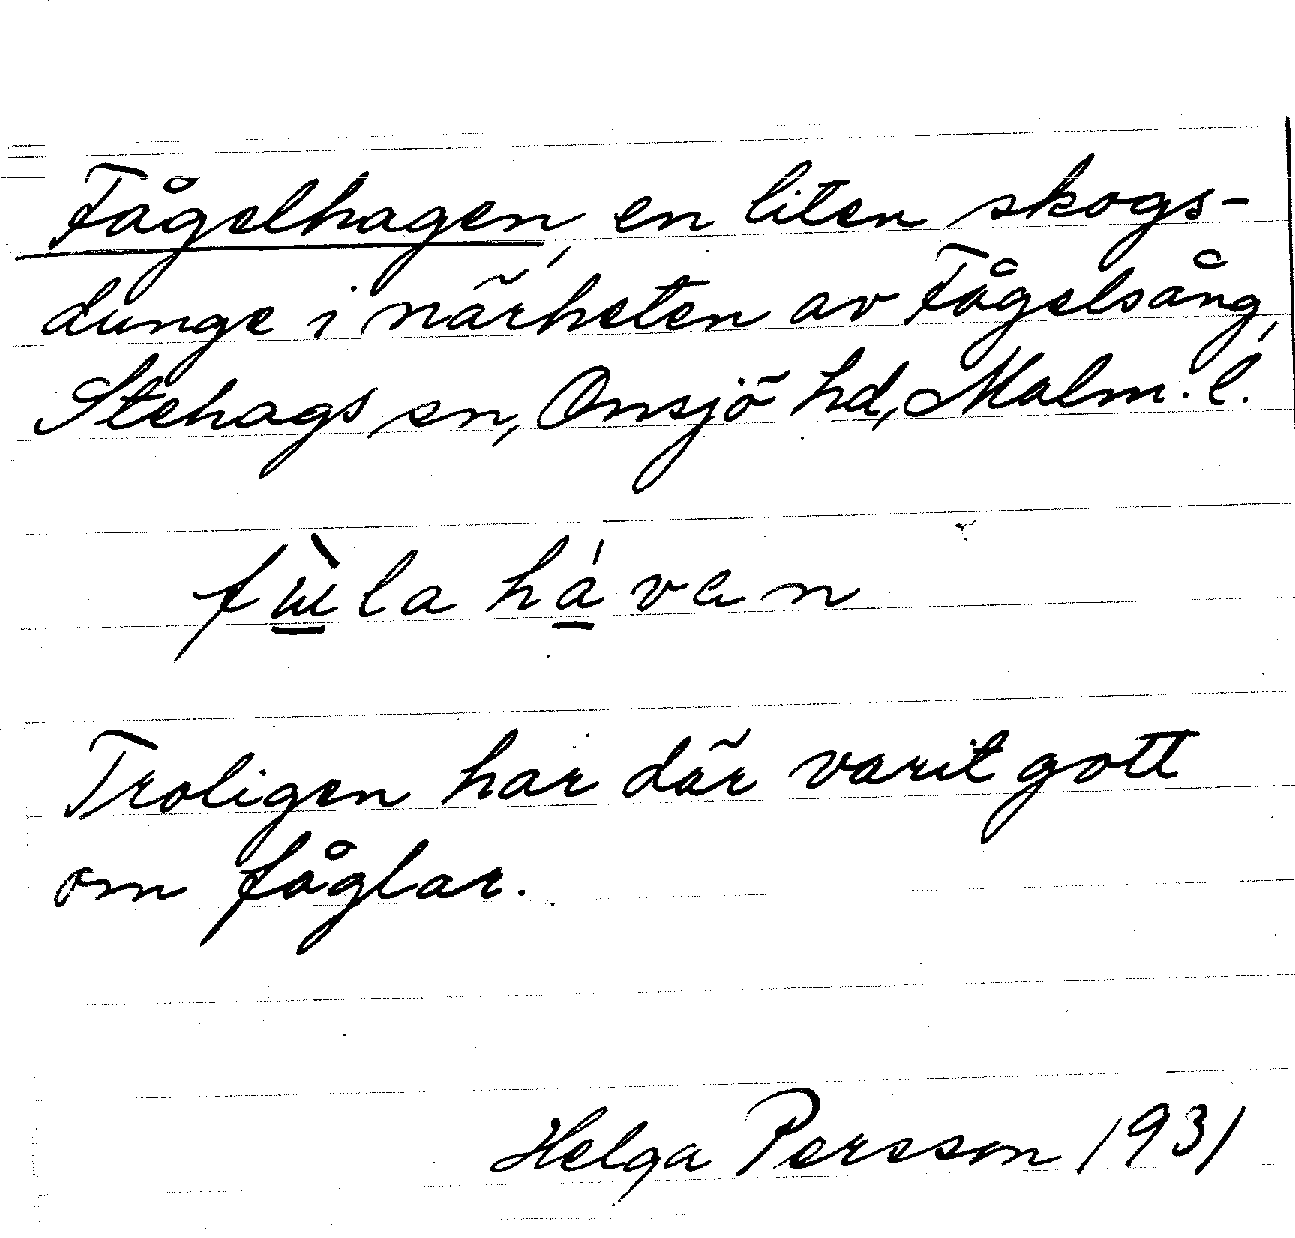 Fågelhagen, en liten skogs-
dunge i närheten av Fågelsång,
Stehags sn, Onsjö hd, Malm. l.
la hávan
Troligen har där varit gott
om fåglar.
Helga Persson 1931